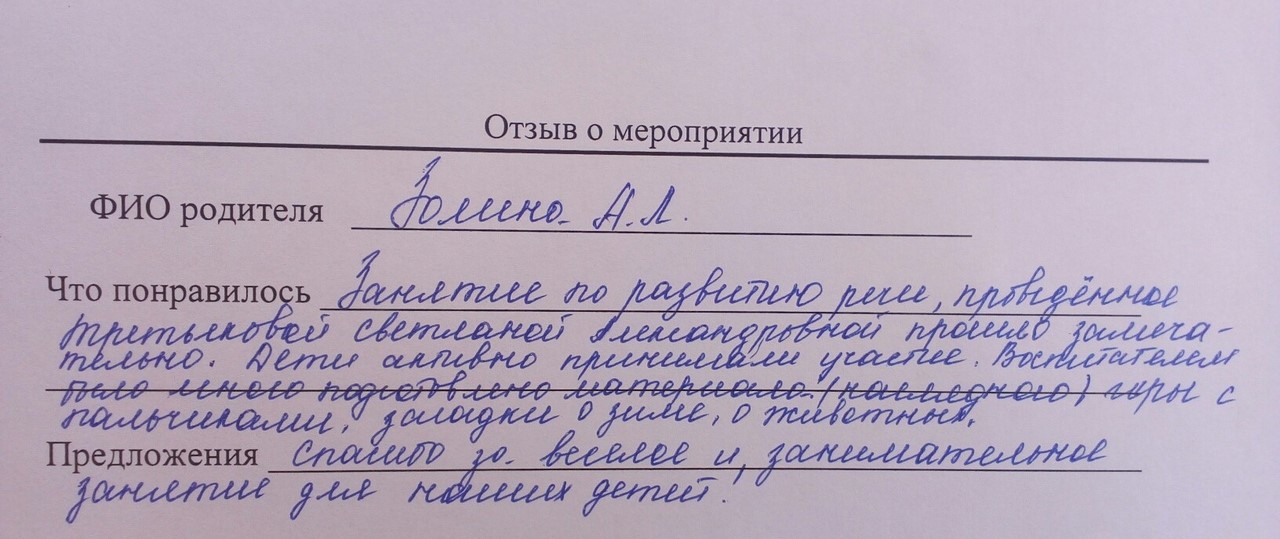 Отзыв о мероприятии
ФИО родителя Зомина А.Л.
Что понравилось Занятие по развитию речи, проведённое
Третьяковой Светланой Александровной прошло замеча-
тельно. Дети активно принимали участие. Воспитателем
было много подготовлено материала (наглядного) игры с
пальчиками, загадки о зиме, о животных.
Предложения Спасибо за веселое и, занимательное
занятие для наших детей.